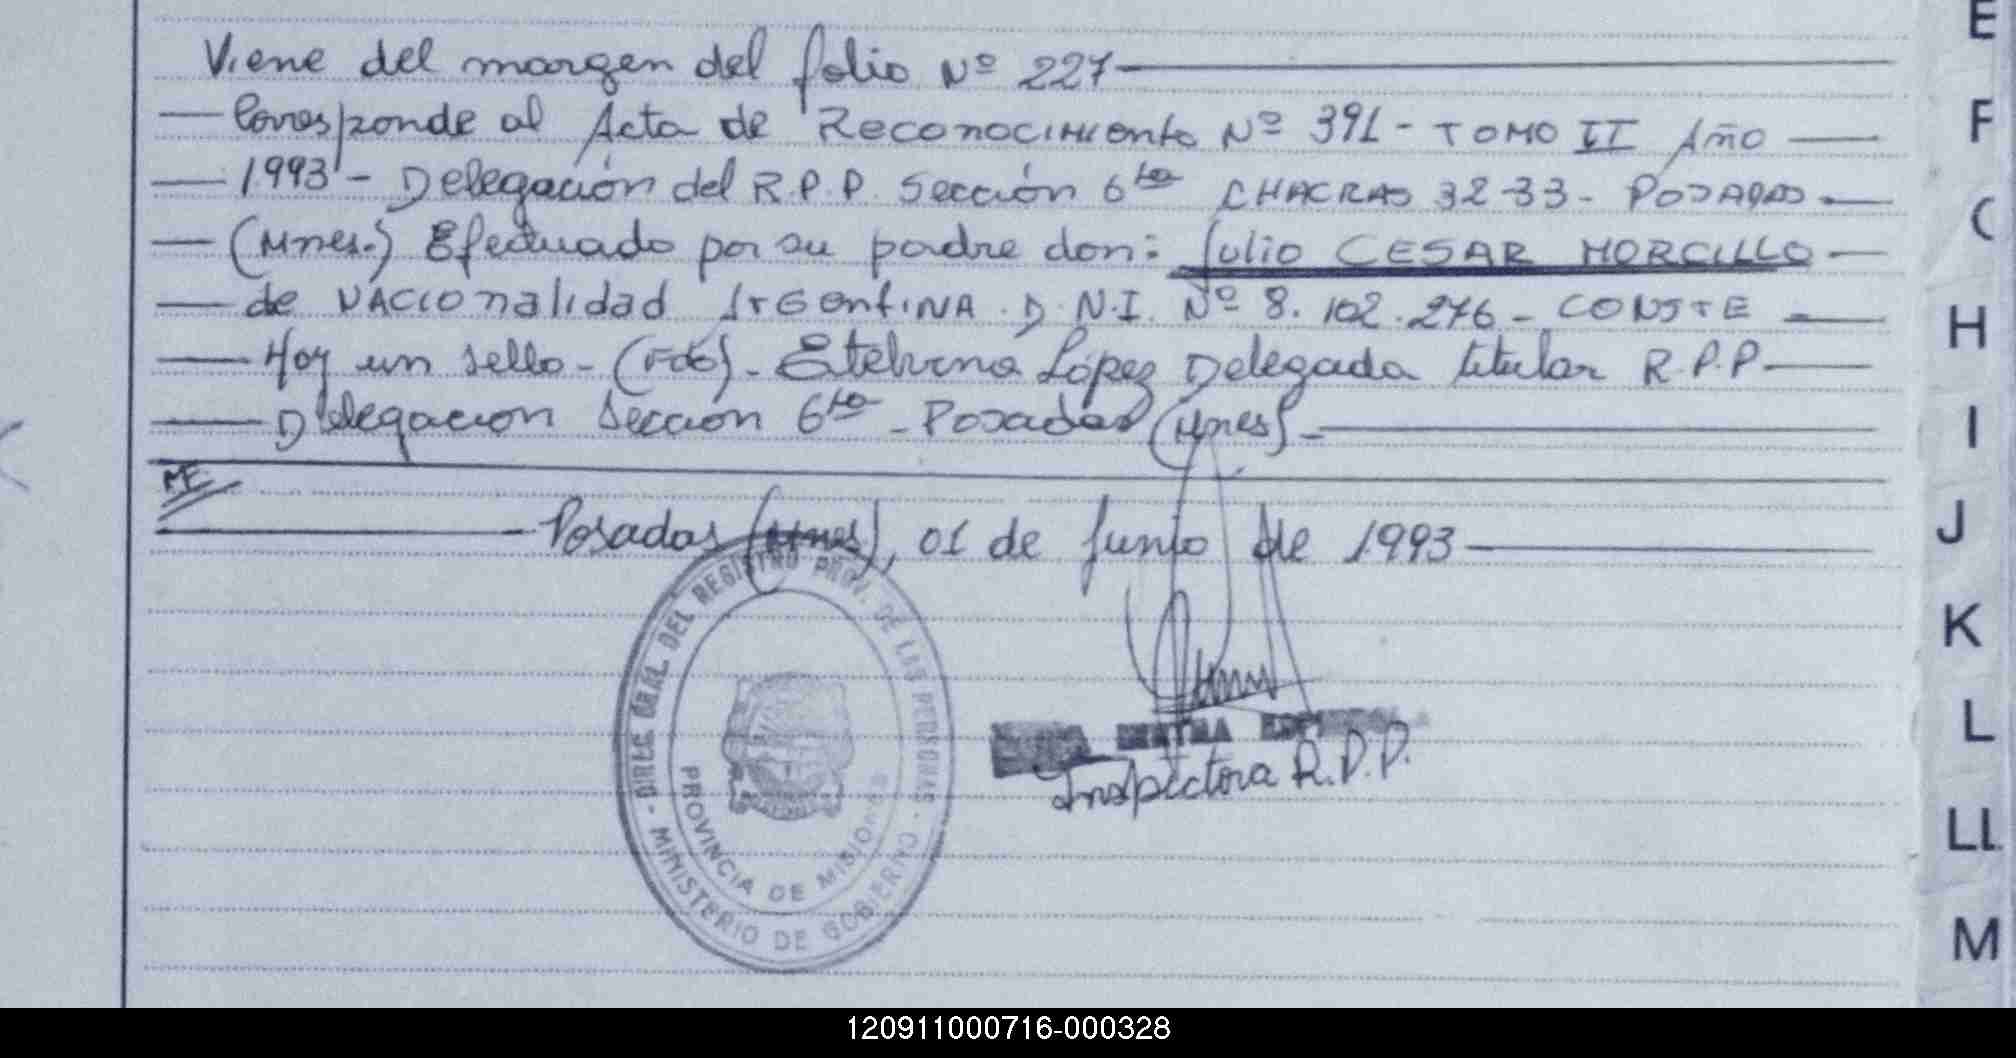 Viene del margen del folio Nº 227
Corresponde al Acta de Reconocimiento Nº 391 - TOMO II Año
1993 - Delegación del R.P.P. Sección 6ta CHACRAS 32-33 - POSADAS
(Mnes.) Efectuado por su padre don: Julio CESAR MORCILLO
de NACIONALIDAD ArGENTINA. D.N.I. Nº 8.102.276 - CONSTE
Hay un sello - (Fdo) - Etelvina López Delegada titular R.P.P
Delegación Sección 6ta - Posadas (Mnes) -
ME
Posadas (Mnes), 01 de Junio de 1993
DIREC. GRAL. DEL REGISTRO PROV. DE LAS PERSONAS
MINISTERIO DE GOBIERNO
PROVINCIA DE MISIONES
Inspectora R.P.P.
E
F
H
I
J
K
L
LL
M
120911000716-000328